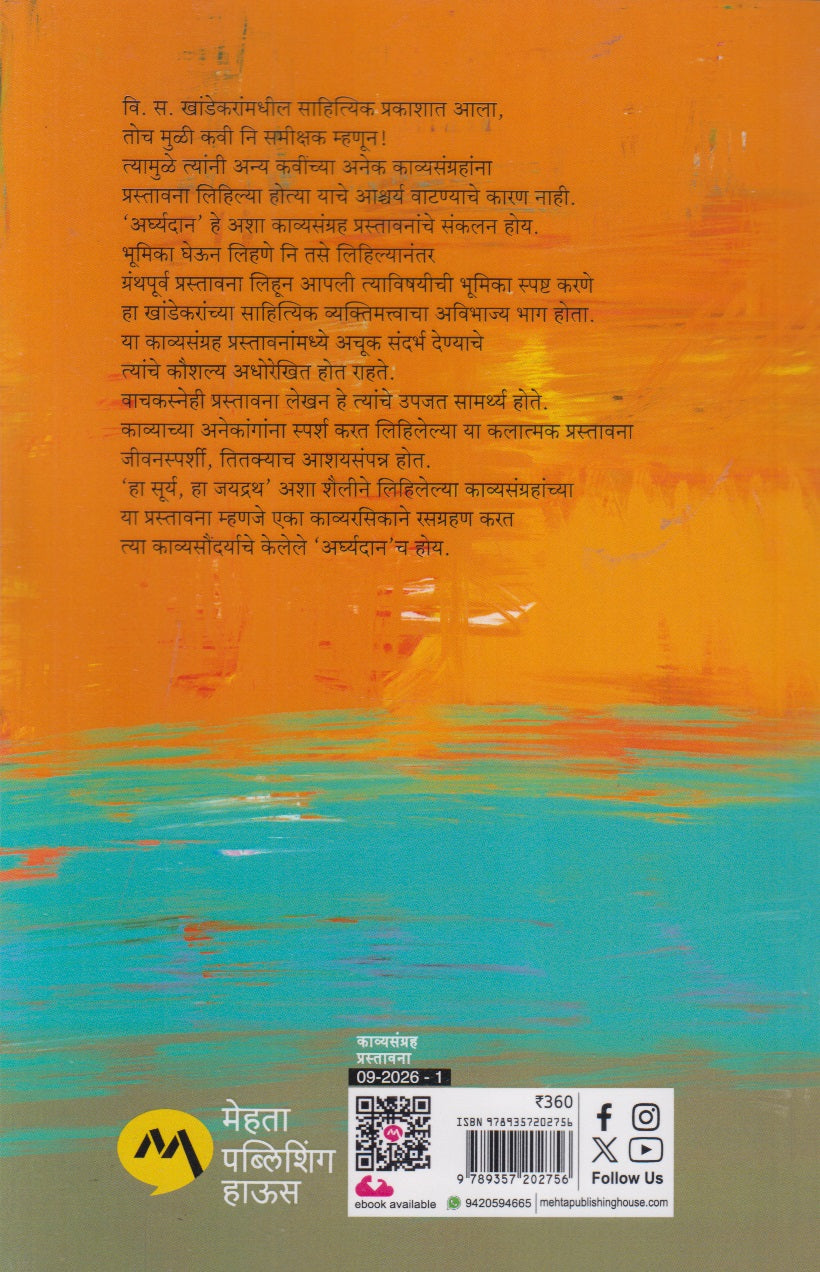 वि. स. खांडेकरांमधील साहित्यिक प्रकाशात आला,
तोच मुळी कवी नि समीक्षक म्हणून!
त्यामुळे त्यांनी अन्य कवींच्या अनेक काव्यसंग्रहांना
प्रस्तावना लिहिल्या होत्या याचे आश्चर्य वाटण्याचे कारण नाही.
‘अर्घ्यदान’ हे अशा काव्यसंग्रह प्रस्तावनांचे संकलन होय.
भूमिका घेऊन लिहणे नि तसे लिहिल्यानंतर
ग्रंथपूर्व प्रस्तावना लिहून आपली त्याविषयीची भूमिका स्पष्ट करणे
हा खांडेकरांच्या साहित्यिक व्यक्तिमत्त्वाचा अविभाज्य भाग होता.
या काव्यसंग्रह प्रस्तावनांमध्ये अचूक संदर्भ देण्याचे
त्यांचे कौशल्य अधोरेखित होत राहते.
वाचकस्नेही प्रस्तावना लेखन हे त्यांचे उपजत सामर्थ्य होते.
काव्याच्या अनेकांगांना स्पर्श करत लिहिलेल्या या कलात्मक प्रस्तावना
जीवनस्पर्शी, तितक्याच आशयसंपन्न होत.
‘हा सूर्य, हा जयद्रथ’ अशा शैलीने लिहिलेल्या काव्यसंग्रहांच्या
या प्रस्तावना म्हणजे एका काव्यरसिकाने रसग्रहण करत
त्या काव्यसौंदर्याचे केलेले ‘अर्घ्यदान’च होय.
काव्यसंग्रह
प्रस्तावना
09-2026 - 1
मेहता
पब्लिशिंग
हाऊस
₹360
ISBN 9789357202756
9 789357 202756
Follow Us
ebook available
9420594665
mehtapublishinghouse.com